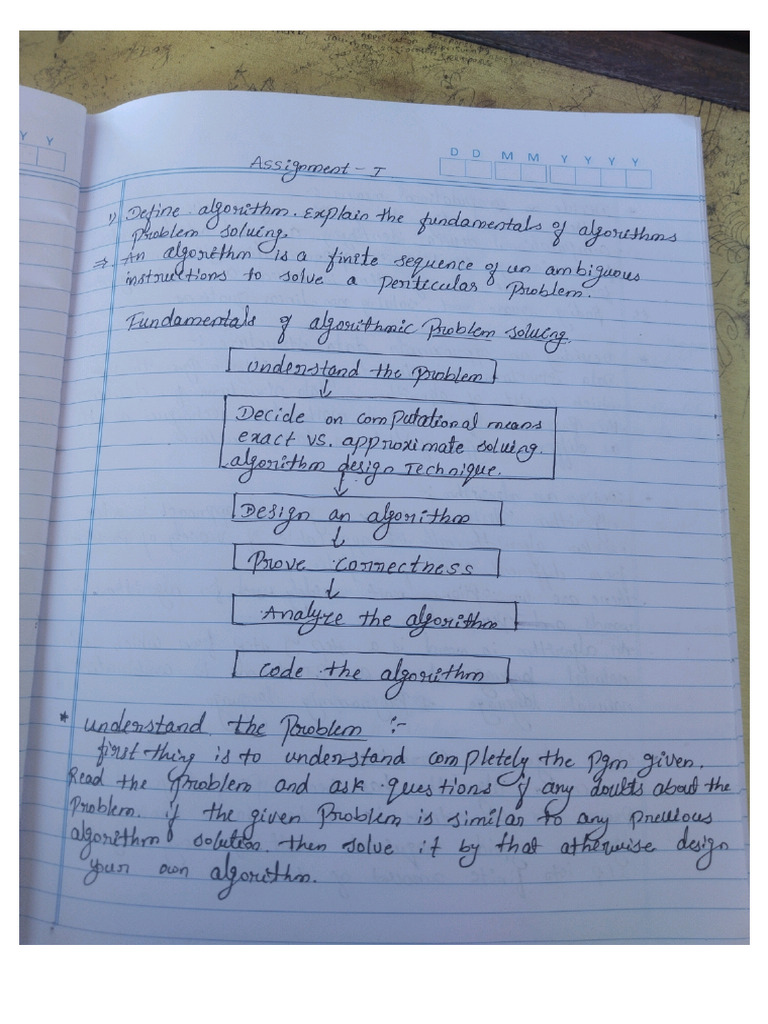 Y Y
D D M M Y Y Y Y
Assignment - I
1) Define algorithm. Explain the fundamentals of algorithms
problem solving.
⇒ An algorithm is a finite sequence of un ambiguous
instructions to solve a periticular Problem.
Fundamentals of algorithmic Problem solving.
Understand the Problem
↓
Decide on computational means
exact vs. approximate solving.
algorithm design Technique.
↓
Design an algorithm
↓
Prove correctness
↓
Analyze the algorithm
code the algorithm
* understand the Problem :-
first thing is to understand completely the pgm given.
Read the Problem and ask questions if any doubts about the
Problem. if the given Problem is similar to any previous
algorithm solution then solve it by that otherwise design
your own algorithm.